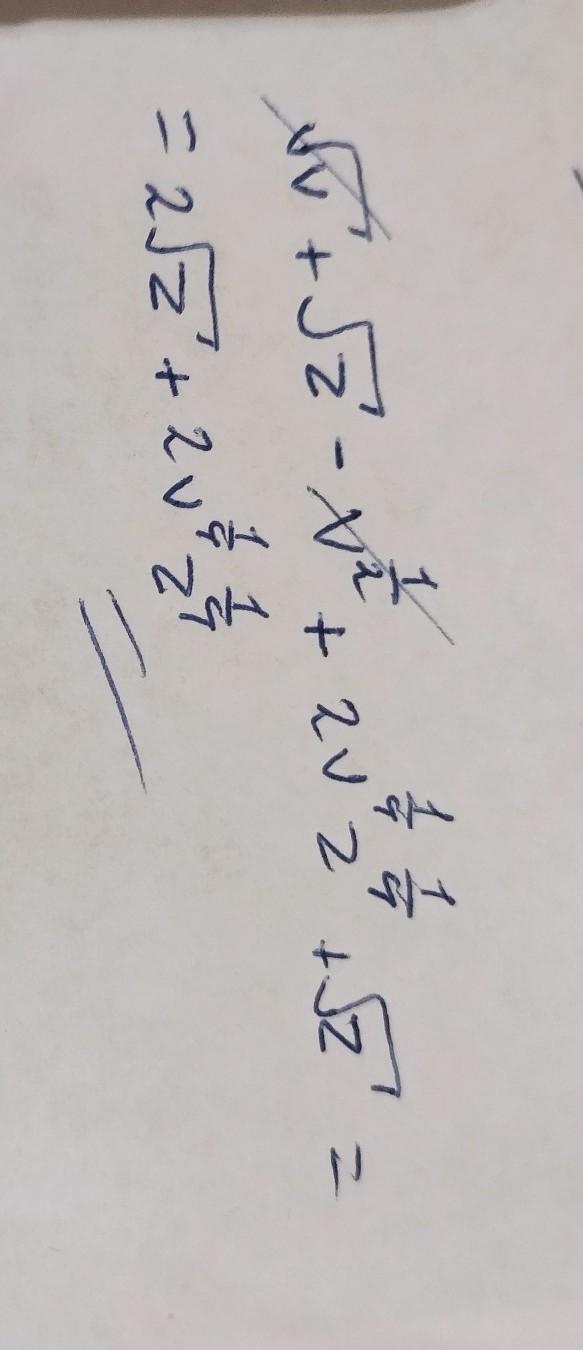 √v + √z - v^(1/2) + 2v^(1/4) z^(1/4) + √z =
= 2√z + 2v^(1/4) z^(1/4)